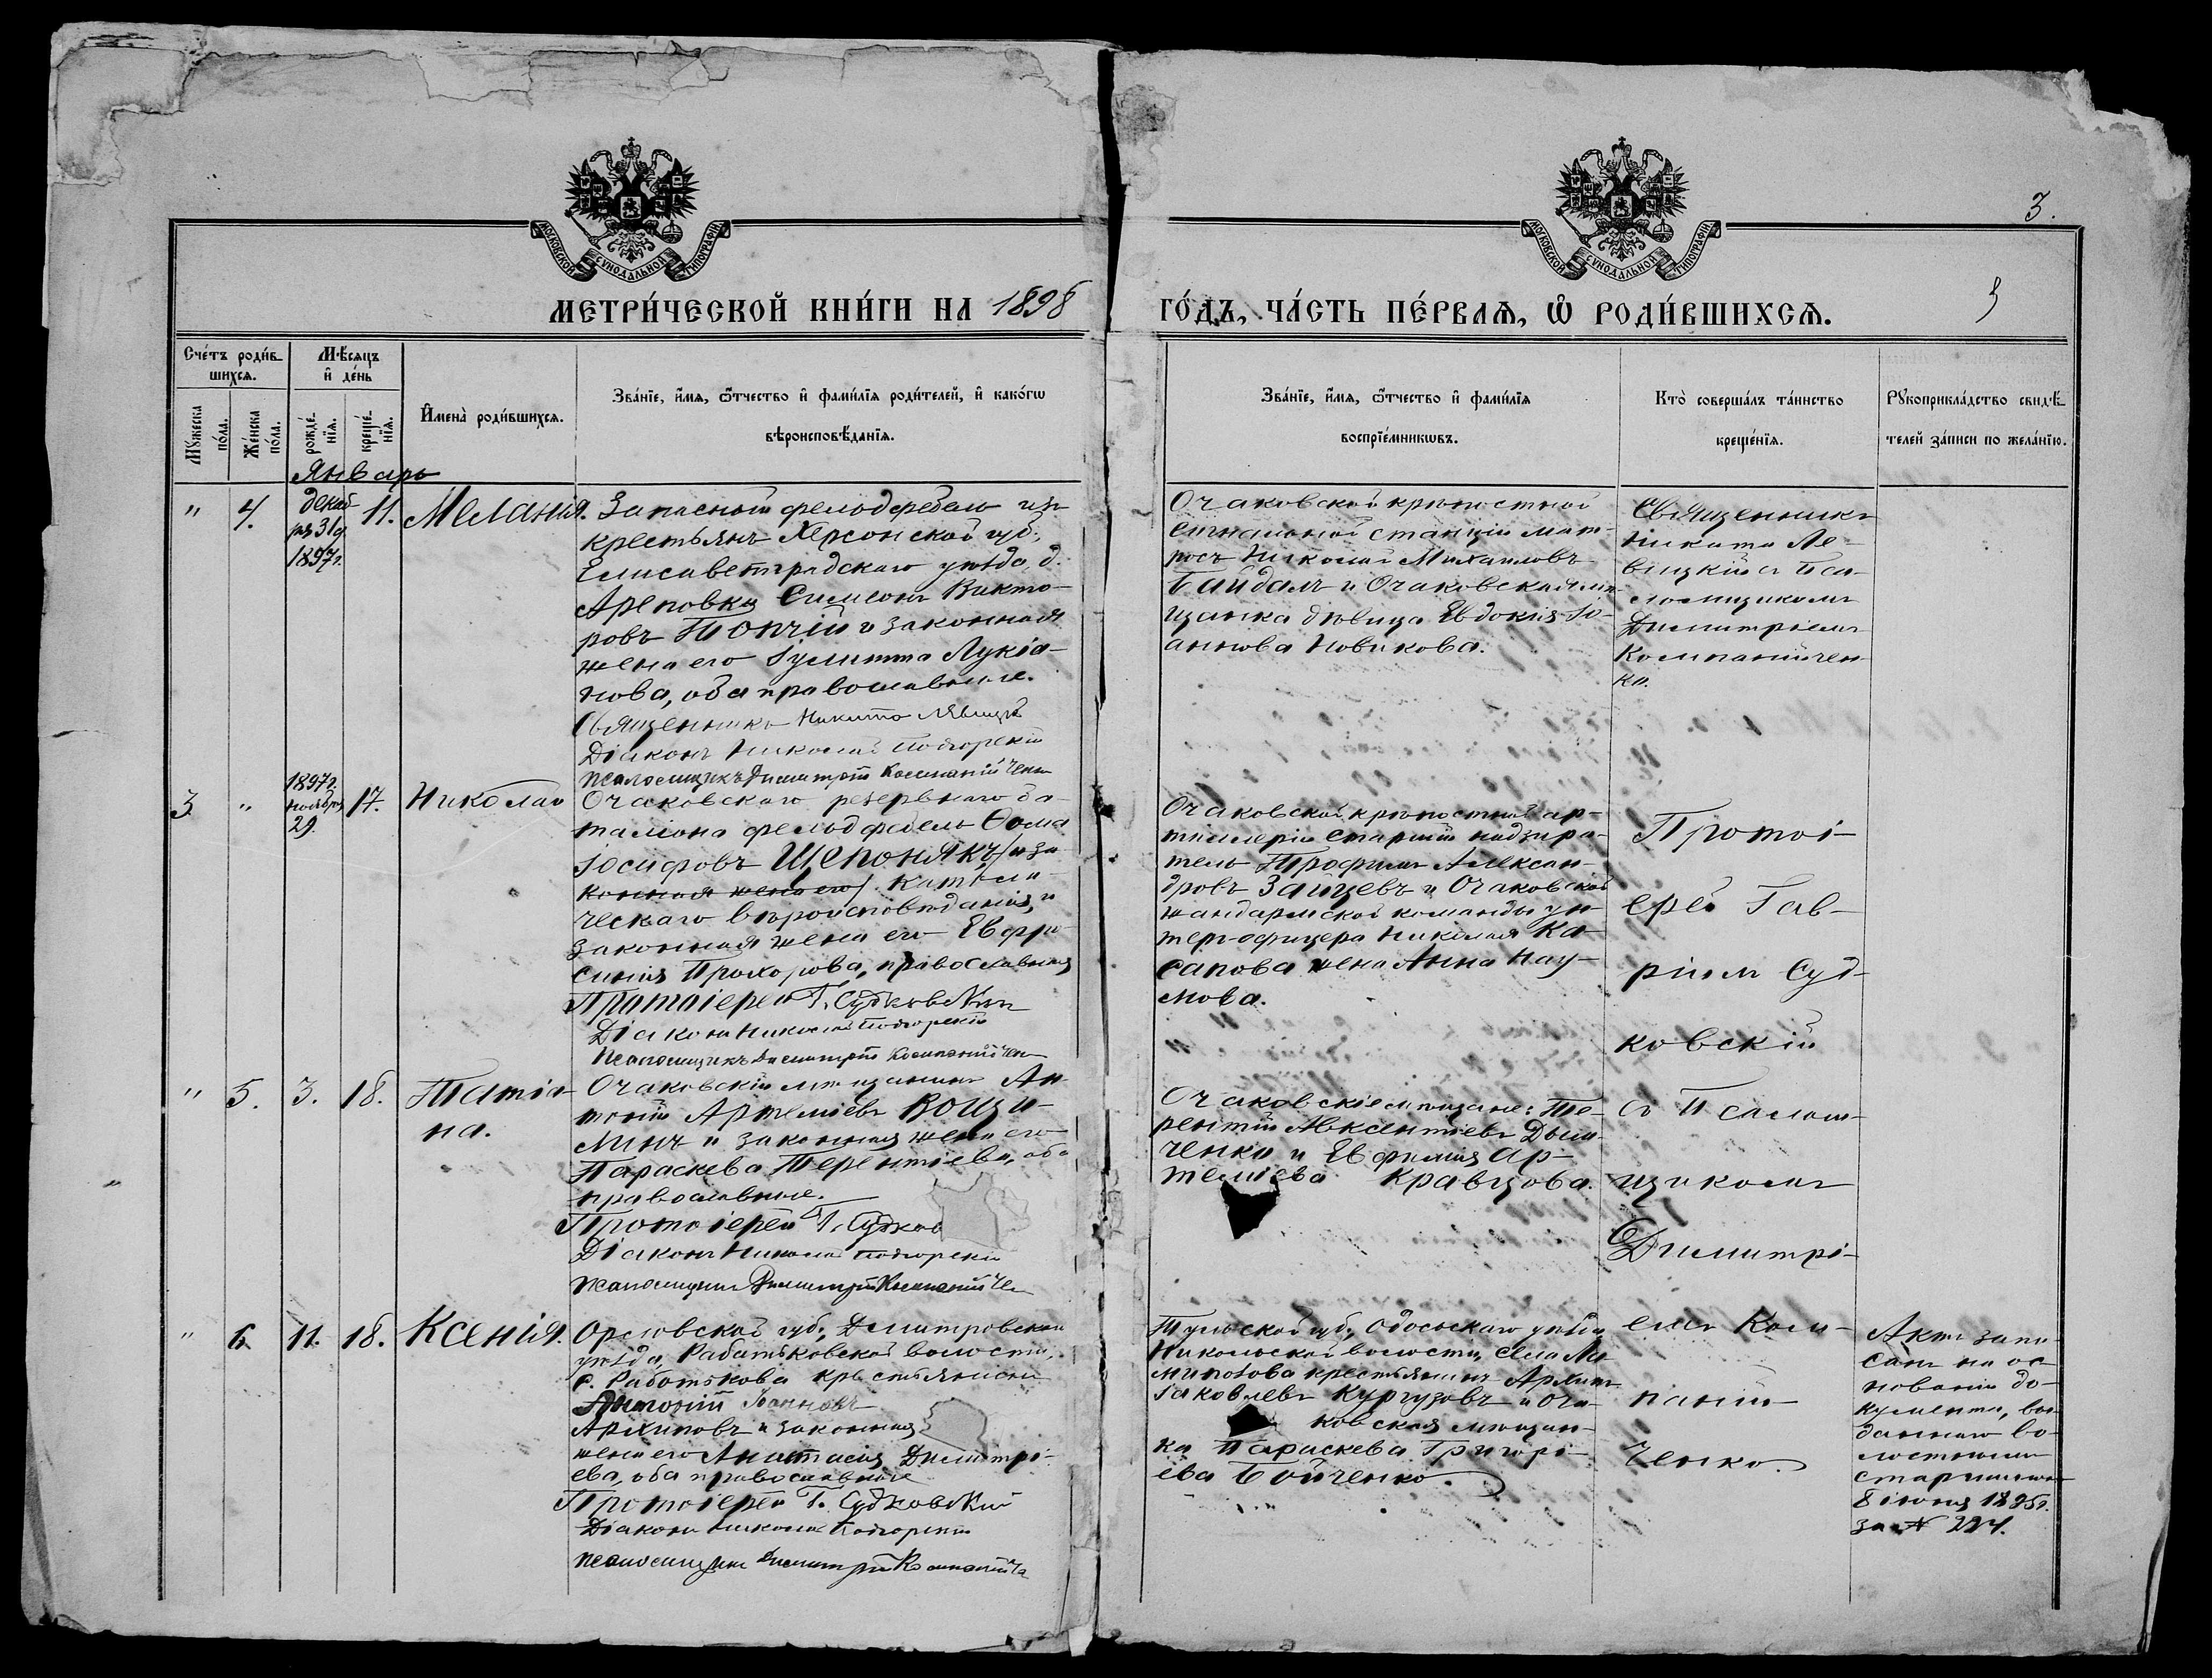 3.
МОСКОВСКОЙ СѴНОДАЛЬНОЙ ТИПОГРАФІИ
МОСКОВСКОЙ СѴНОДАЛЬНОЙ ТИПОГРАФІИ
МЕТРИ́ЧЕСКОЙ КНИ́ГИ НА 1898 ГО́ДЪ, ЧА́СТЬ ПЕ́РВАѦ, Ѽ РОДИ́ВШИХСѦ.
Сче́тъ роди́в-
шихсѧ.
Мꙋжеска
по́ла.
Же́нска
по́ла.
Мѣ́сѧцъ
и҆ де́нь
рожде́-
нїѧ.
креще́-
нїѧ.
И҆мена̀ роди́вшихсѧ.
Зва́нїе, и҆́мѧ, ѻ҆́тчество и҆ фами́лїѧ роди́телей, и҆ како́гѡ
вѣроисповѣ́данїѧ.
Зва́нїе, и҆́мѧ, ѻ҆́тчество и҆ фами́лїѧ
воспрїе́мникѡвъ.
Кто̀ соверша́лъ та́инство
креще́нїѧ.
Рꙋкоприкла́дство свидѣ́-
телей за́писи по жела́нїю.
Январь
" 4.
декаб-
ря 31 д.
1897 г.
11.
Меланія.
Запасной фельдфебель изъ
крестьянъ Херсонской губ.,
Елисаветградскаго уѣзда, д.
Арповки Симеонъ Викто-
ровъ Топчій и законная
жена его Іулитта Лукіа-
нова, оба православные.
Священникъ Никита Левицкій
Діаконъ Николай Подгорскій
Псаломщикъ Димитрій Компанійчен
Очаковской крѣпостной
сигнальной станціи мат-
росъ Николай Михайловъ
Байдалъ и Очаковская мѣ-
щанка дѣвица Евдокія Іо-
аннова Новикова.
Священникъ
Никита Ле-
вицкій съ Пса-
ломщикомъ
Димитріемъ
Компанійчен-
ко.
3 "
1897 г.
ноября
29.
17.
Николай
Очаковскаго резервнаго ба-
таліона фельдфебель Ѳома
Іосифовъ Щепонякъ и за-
конная жена его Католи-
ческаго вѣроисповѣданія, и
законная жена его Евфро-
синія Прохорова, православная
Протоіерей Г. Судковскій
Діаконъ Николай Подгорскій
Псаломщикъ Димитрій Компанійчен
Очаковской крѣпостной ар-
тиллеріи старшій надзира-
тель Трофимъ Алексан-
дровъ Зайцевъ и Очаковской
жандармской команды ун-
теръ-офицера Николая Ка-
сапова жена Анна Нау-
мова.
Протоі-
ерей Гав-
ріилъ Суд-
ковскій
съ Псалом-
щикомъ
Димитрі-
емъ Ком-
паній-
ченко.
" 5. 3. 18.
Татіа-
на.
Очаковскій мѣщанинъ Ан-
тоній Артеміевъ Вощи-
линъ и законная жена его
Параскева Терентіева, оба
православные.
Протоіерей Г. Судков
Діаконъ Николай Подгорскій
Псаломщикъ Димитрій Компанійчен
Очаковскіе мѣщане: Те-
рентій Авксентіевъ Дом-
ченко и Евфимія Ар-
теміева Кравцова.
" 6. 11. 18.
Ксенія.
Орловской губ., Дмитровскаго
уѣзда, Работьковской волости,
с. Работькова крестьянинъ
Антоній Іоанновъ
Архиповъ и законная
жена его Анастасія Димитрі-
ева, оба православные
Протоіерей Г. Судковскій
Діаконъ Николай Подгорскій
Псаломщикъ Димитрій Компанійче
Тульской губ., Одоевскаго уѣзда
Никольской волости, села
крестьянинъ
Іаковлевъ Кургузовъ и Оча-
ковская мѣщан-
ка Параскева Григорі-
ева Бойченко.
Актъ запи-
санъ на ос-
нованіи до-
кумента, вы-
даннаго во-
лостнымъ
старшиною
8 іюня 1895 г.
за № 224.